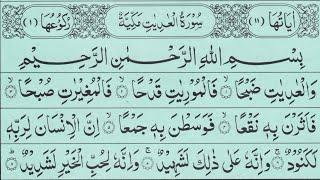 اٰيَاتُهَا (١١) سُوْرَةُ الْعٰدِيٰتِ مَكِّيَّةٌ رُكُوْعُهَا (١)
بِسْمِ اللهِ الرَّحْمٰنِ الرَّحِيْمِ
وَالْعٰدِيٰتِ ضَبْحًا ۙ فَالْمُوْرِيٰتِ قَدْحًا ۙ فَالْمُغِيْرٰتِ صُبْحًا ۙ
فَاَثَرْنَ بِهٖ نَقْعًا ۙ فَوَسَطْنَ بِهٖ جَمْعًا ۙ اِنَّ الْاِنْسَانَ لِرَبِّهٖ
لَكَنُوْدٌ ۚ وَاِنَّهٗ عَلٰى ذٰلِكَ لَشَهِيْدٌ ۚ وَاِنَّهٗ لِحُبِّ الْخَيْرِ لَشَدِيْدٌ ؕ